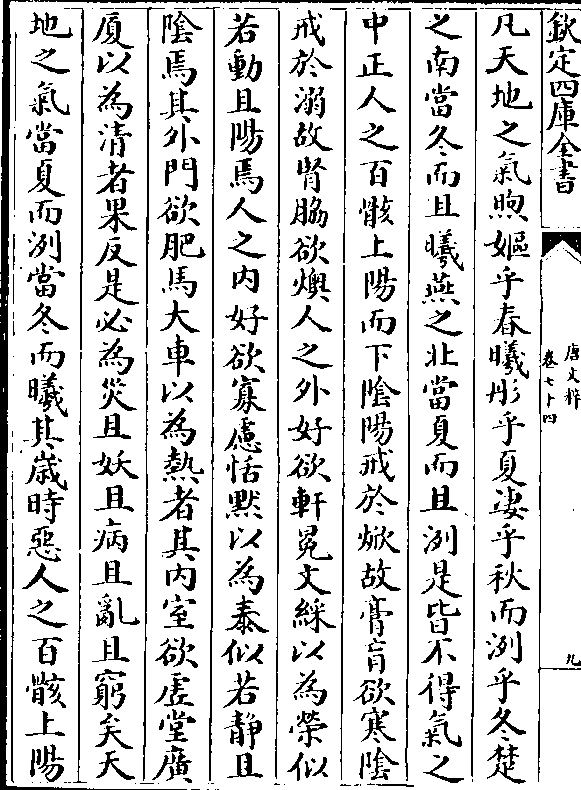 欽定四庫全書
唐文粹
卷七十四
九
凡天地之氣煦嫗乎春曦彤乎夏淒乎秋而洌乎冬楚
之南當冬而且曦燕之北當夏而且洌是皆不得氣之
中正人之百骸上陽而下陰陽戒於焮故膏肓欲寒陰
戒於溺故腎脇欲燠人之外好欲軒冕文綵以為榮似
若動且陽焉人之内好欲寡慮恬默以為泰似若静且
陰焉其外門欲肥馬大車以為熱者其内室欲虛堂廣
厦以為清者果反是必為災且妖且病且亂且窮矣天
地之氣當夏而洌當冬而曦其歳時惡人之百骸上陽